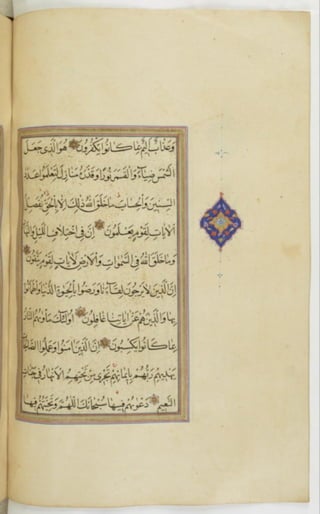 وعذاب اليم بما كانوا يكفرون هو الذي جعل
الشمس ضياء والقمر نورا وقدره منازل لتعلموا عدد
السنين والحساب ما خلق الله ذلك الا بالحق يفصل
الآيات لقوم يعلمون ان في اختلاف الليل والنهار
وما خلق الله في السموات والارض لآيات لقوم يتقون
ان الذين لا يرجون لقاءنا ورضوا بالحيوة الدنيا واطمأنوا
بها والذين هم عن آياتنا غافلون اولئك مأويهم النار
بما كانوا يكسبون ان الذين آمنوا وعملوا الصالحات
يهديهم ربهم بايمانهم تجري من تحتهم الانهار في جنات
النعيم دعويهم فيها سبحانك اللهم وتحيتهم فيها